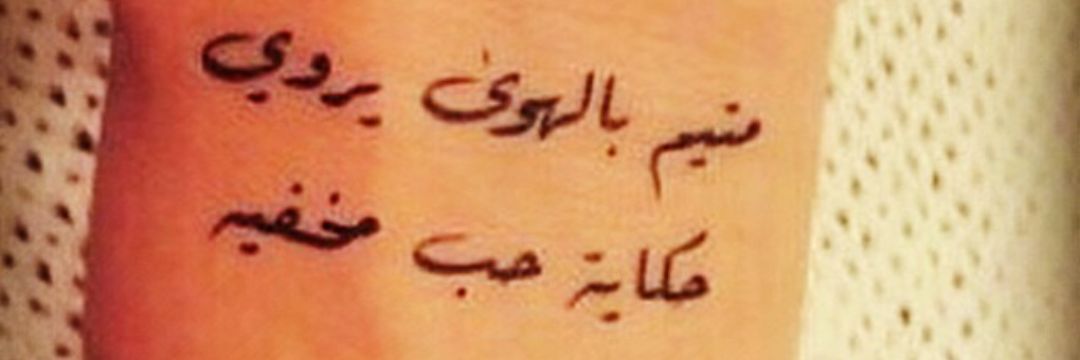 متيم بالهوىٰ يروي
حكاية حب مخفيه